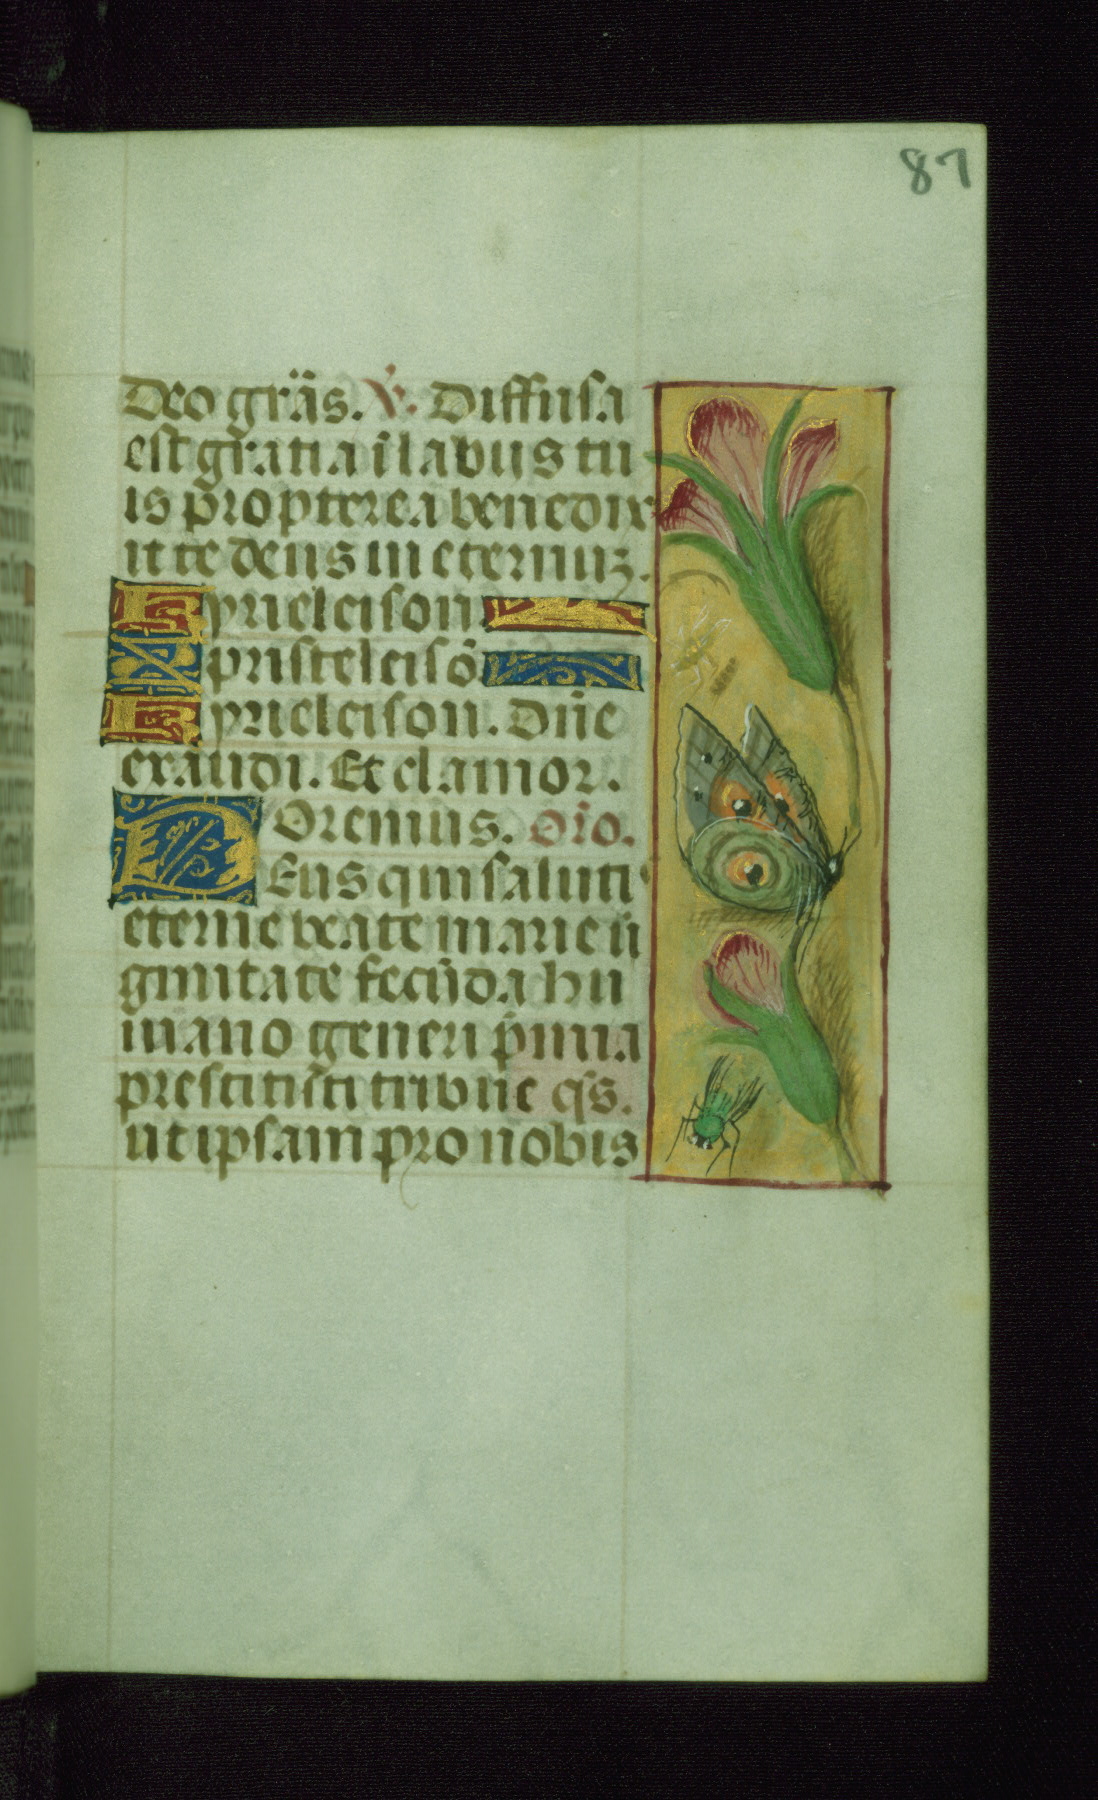 87
Deo grãs. V̇. Diffusa
est gratia ĩ labijs tu
is propterea benedix
it te deus in eternuz.
Kyrieleison.
Xpristeleisõ
Kyrieleison. Dñe
exaudi. Et clamor.
Oremus. Oĩo.
DEus qui saluti
eterne beate marie ũ
ginitate fecũda hu
mano generi p̃mia
prestitisti tribue q̃s.
ut ipsam pro nobis